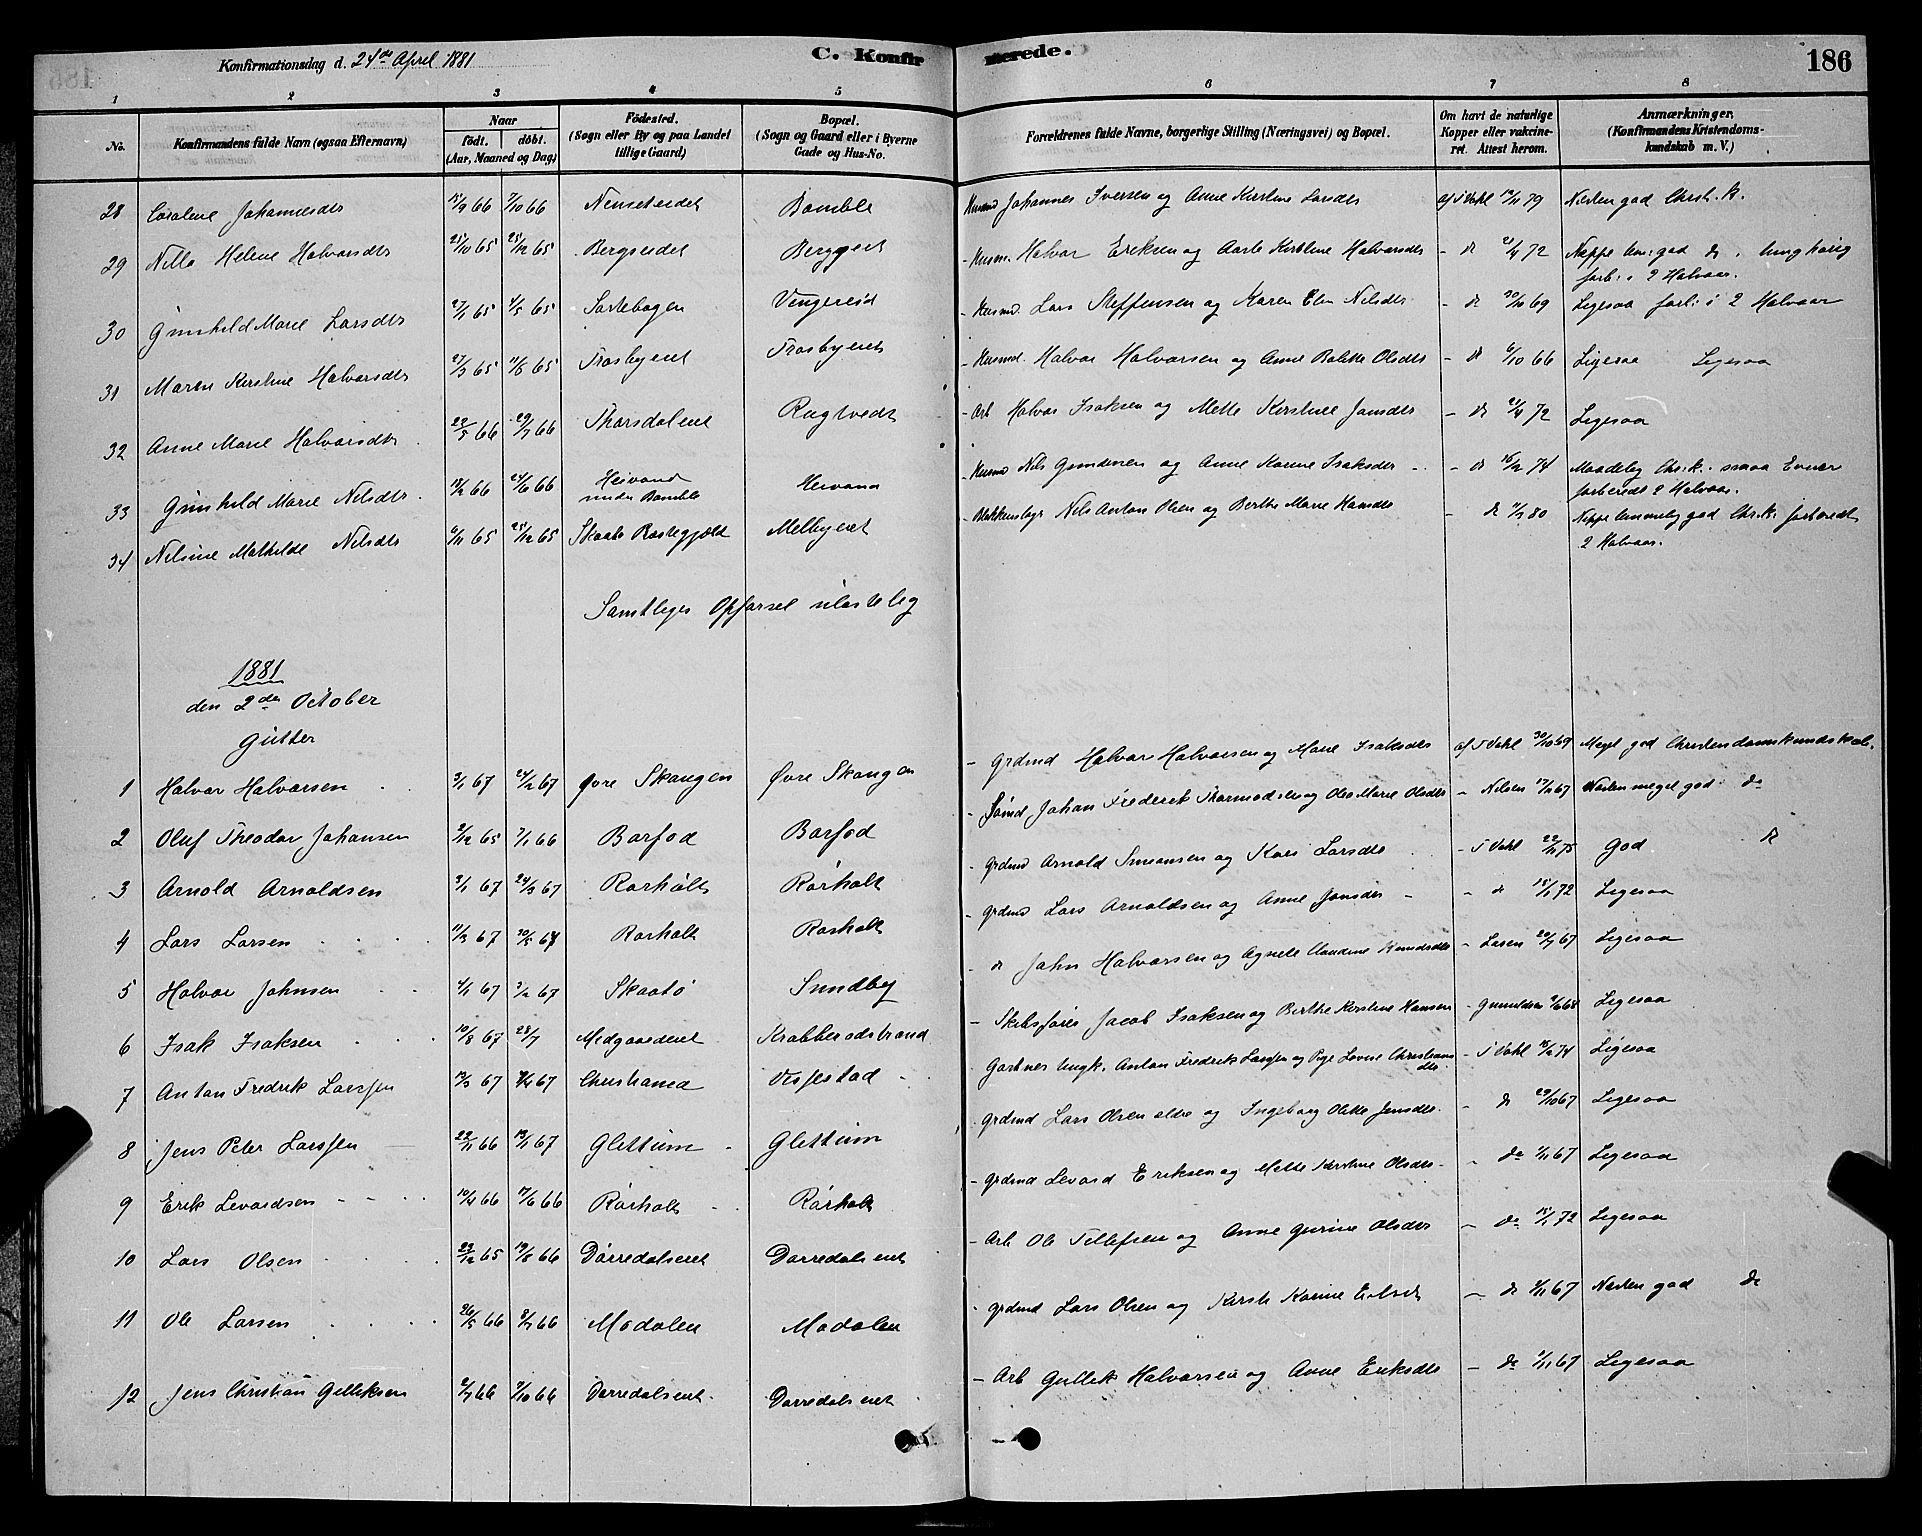 Konfirmationsdag d. 24de April 1881
C. Konfirmerede.
186
1 2 3 4 5 6 7 8
No.
Konfirmandens fulde Navn (ogsaa Efternavn)
Naar
født. døbt.
(Aar, Maaned og Dag)
Fødested.
(Sogn eller By og paa Landet
tillige Gaard)
Bopæl.
(Sogn og Gaard eller i Byerne
Gade og Hus-No.
Forældrenes fulde Navne, borgerlige Stilling (Næringsvei) og Bopæl.
Om havt de naturlige
Kopper eller vakcine-
ret. Attest herom.
Anmærkninger.
(Konfirmandens Kristendoms-
kundskab m. V.)
28 Johannesdtr 17/9 66 7/10 66 Bamble Husmd Johannes Iversen og Anne Kirstine Larsdtr af T Vahl 12/11 79 Nesten god Christ. k.
29 Nille Helene Halvorsdtr 25/10 65 25/12 65 Bergseidet - Husm. Halvor Eriksen og Kirstine Halvorsdtr - do 21/4 72 Neppe
forb: i 2 Halvaar.
30 Gunhild Marie Larsdtr 27/1 65 4/5 65 Vingereid - Husmd. Lars Steffensen og Maren Elen Nilsdtr - do 20/10 69 Ligesaa forb: i 2 Halvaar
31 Maren Kirstine Halvorsdtr 27/3 65 11/6 65 Trosbyeiet Trosbyeiet - Husmd. Halvor Halvorsen og Anne Olsdtr - do 6/10 66 Ligesaa Ligesaa
32 Anne Marie Halvorsdtr 22/5 66 29/7 66 Thorsdaleiet Rugtvedt - Arb Halvor Isaksen og Mette Kirstine Jansdtr - do 21/4 72 Ligesaa
33 Gunhild Marie Nilsdtr 18/2 66 24/6 66 Heivand
under Bamble Heivand - Husmd Nils og Anne Karine Isaksdtr - do 15/2 74 Maadelig Chr: k. smaa Evner
forberedt 2 Halvaar.
34 Nilsine Mathilde Nilsdtr 6/11 65 25/12 65 Melbyeiet Nils Anton Olsen og Berthe Marie Hansdtr - do 11/3 80 Neppe god Chr: k: forberedt
2 Halvaar.
Samtliges Opførsel ulastelig
1881
den 2den October
Gutter
1 Halvor Halvorsen 3/1 67 24/2 67 Øvre Skaugen Øvre Skaugen - Grdmd Halvor Halvorsen og Marie Isaksdtr af T Vahl 30/10 69 Meget god Christendomskundskab.
2 Oluf Theodor Johansen 2/12 65 7/1 66 Barfod Barfod - Sømd Johan Frederik Thormodsen og Olea Marie Olsdtr - Nilsen 17/2 67 Nesten meget god do
3 Arnold Arnoldsen 3/1 67 24/3 67 Rørholt Rørholt - Grdmd Arnold Simonsen og Kari Larsdtr - T Vahl 22/11 75 God do
4 Lars Larsen 11/3 67 30/5 67 Rørholt Rørholt - Grdmd Lars Arnoldsen og Anne Jansdtr - - do 15/1 72 Ligesaa
5 Halvor Johnsen 4/1 67 3/2 67 Skaatø Sundby - do John Halvorsen og Agnete Claudine Knudsdtr - Larsen 20/7 67 Ligesaa
6 Isak Isaksen 10/3 67 28/7 Midgaardeiet Krabberødstrand - Skibsfører Jacob Isaksen og Berthe Kirstine Hansen - Gunuldsen 9/6 68 Ligesaa
7 Anton Fredrik Larssen 12/3 67 67 Christiania Vissestad - Gartner Ungk. Anton Fredrik Larssen og Lovise Christians
dtr. - T Vahl 15/2 74 Ligesaa
8 Jens Peter Larssen 22/11 66 13/1 67 Glittum - Glittum - Grdmd Lars Olsen eldre og Ingeborg Olette Jensdtr. - do 29/10 67 Ligesaa
9 Erik Levordsen 10/4 66 17/6 66 Rørholt - Rørholt - Grdmd Levord Eriksen og Mette Kirstine Olsdtr - - do 1/11 67 Ligesaa
10 Lars Olsen 22/12 65 13/5 66 Dørredalseiet Dørredalseiet - Arb Ole Tellefsen og Anne Gurine Olsdtr - do 15/1 72 Ligesaa
11 Ole Larsen 26/5 66 2/7 66 Modalen Modalen - Grdmd Lars Olsen og Kirste Karine - do 1/11 67 Nesten god do
12 Jens Christian Gulliksen 2/7 66 7/10 66 Dørredalseiet. Dørredalseiet - Arb Gullik Halvorsen og Anne Eriksdtr - do 1/11 67 Ligesaa